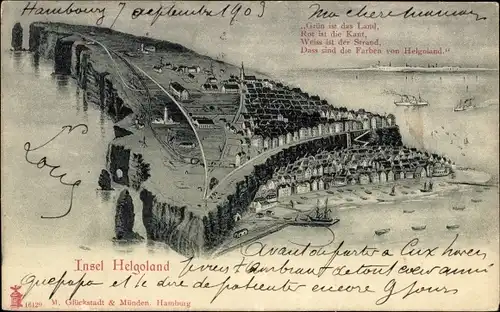 Hambourg 7 Septembre 1903 Ma chère maman
„Grün ist das Land,
Rot ist die Kant,
Weiss ist der Strand,
Dass sind die Farben von Helgoland."
Louis
Insel Helgoland
Avant de partir a Cuxhaven
je viens t'embrasser de tout coeur ainsi
que papa et te dire de patienter encore 9 jours
16129 M. Glückstadt & Münden. Hamburg